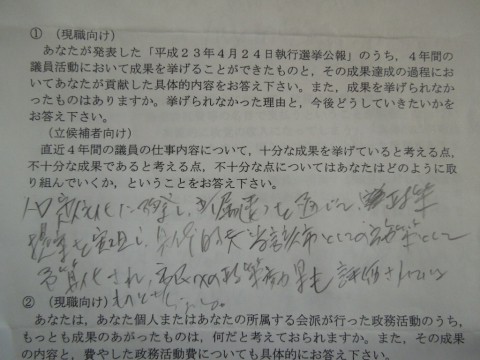 ① (現職向け)
あなたが発表した「平成23年4月24日執行選挙公報」のうち，4年間の
議員活動において成果を挙げることができたものと，その成果達成の過程にお
いてあなたが貢献した具体的内容をお答え下さい。また，成果を挙げられなか
ったものはありますか。挙げられなかった理由と，今後どうしていきたいかを
お答え下さい。
(立候補者向け)
直近4年間の議員の仕事内容について，十分な成果を挙げていると考える点，
不十分な成果であると考える点，不十分な点についてはあなたはどのように取
り組んでいくか，ということをお答え下さい。
を通じて、政策
提案を
予算化され、市民への政策効果も評価されている
ものと
② (現職向け)
あなたは，あなた個人またはあなたの所属する会派が行った政務活動のうち，
もっとも成果のあがったものは，何だと考えておられますか。また，その成果
の内容と，費やした政務活動費についても具体的にお答え下さい。